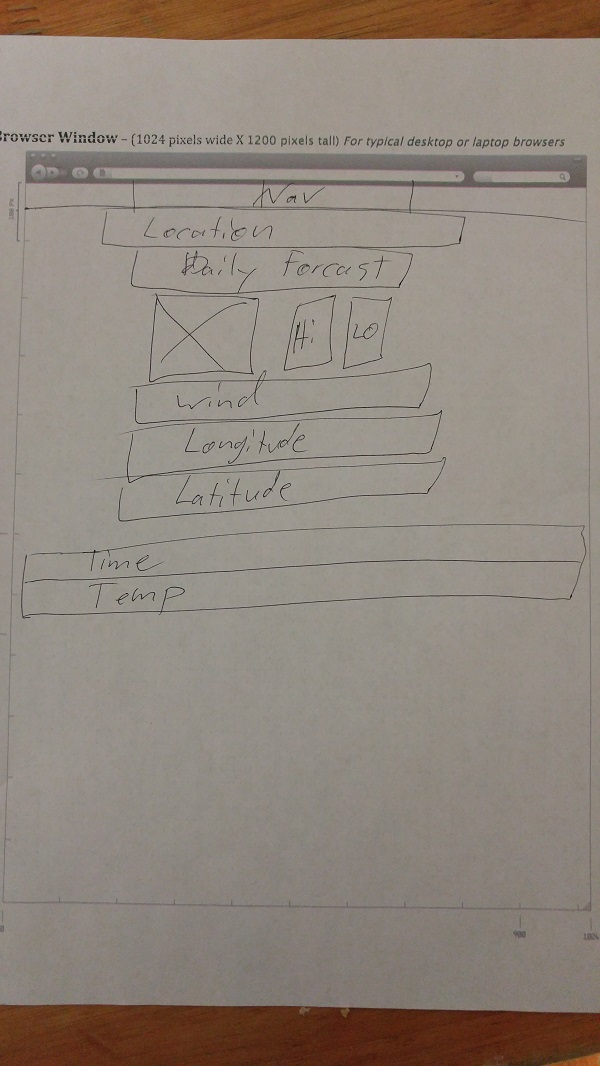 Browser Window – (1024 pixels wide X 1200 pixels tall) For typical desktop or laptop browsers
Nav
Location
Daily Forcast
Hi LO
Wind
Longitude
Latitude
Time
Temp